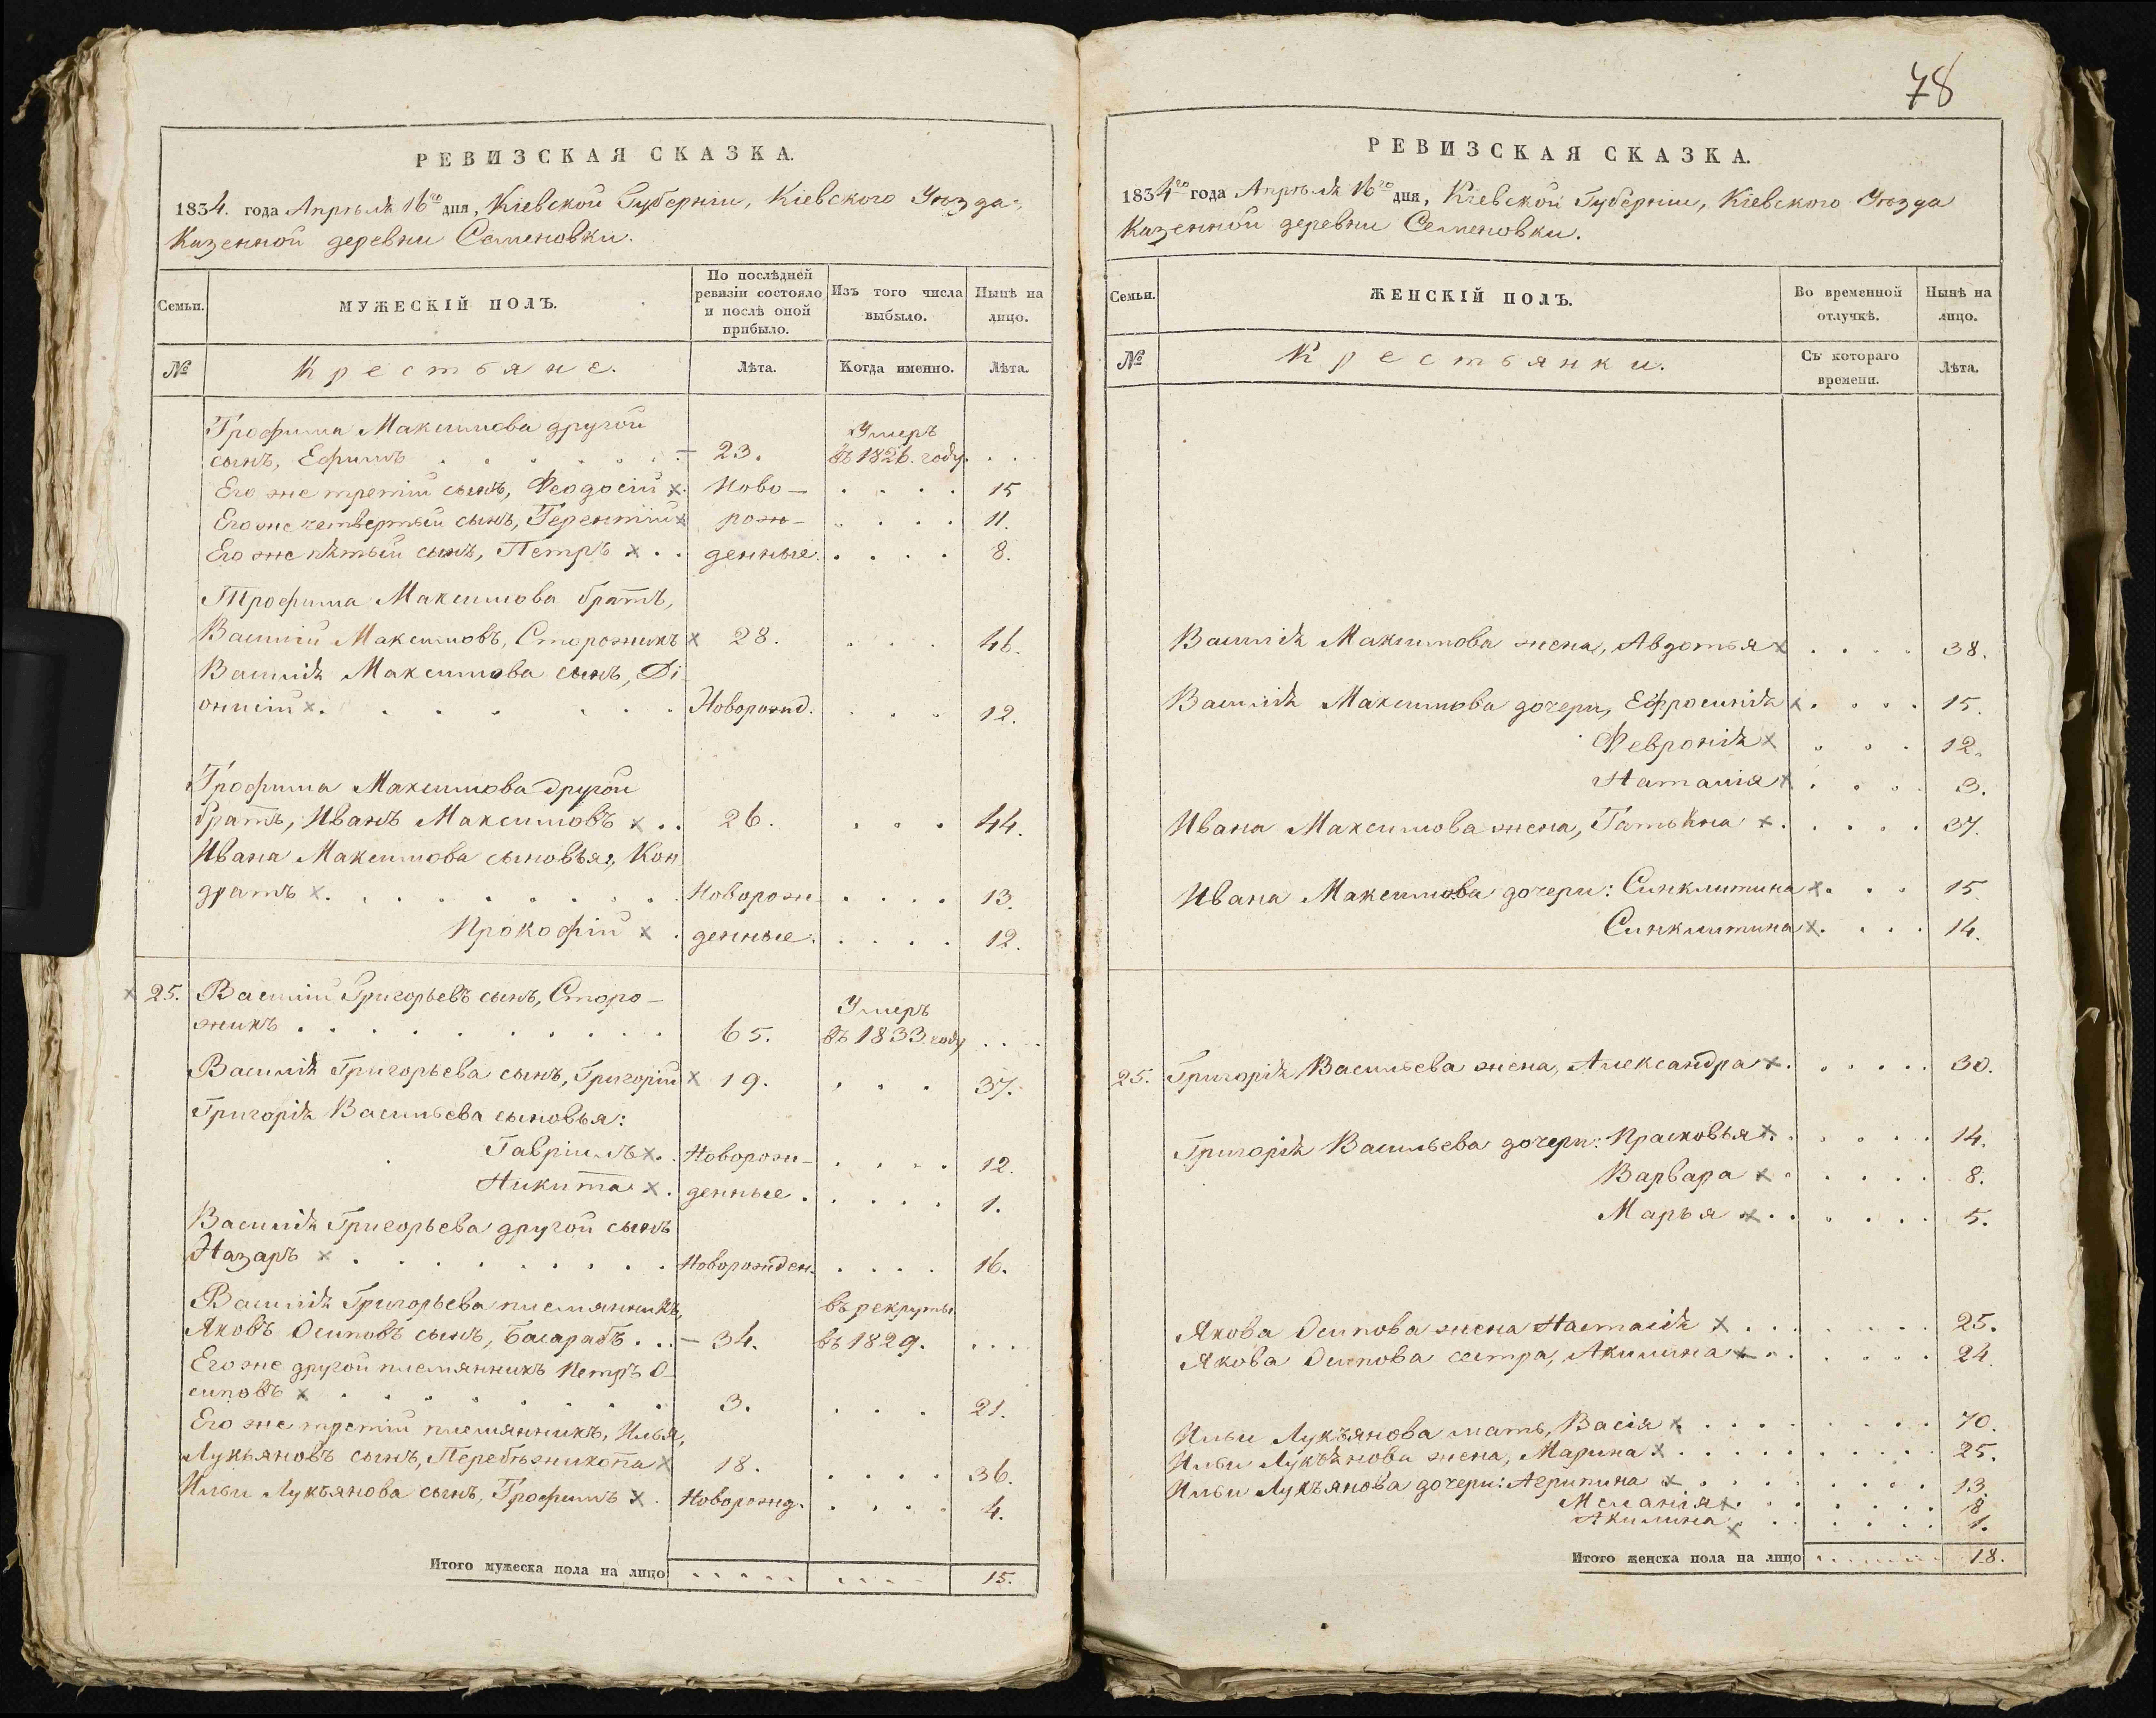 РЕВИЗСКАЯ СКАЗКА.
1834. года Апрѣля 16го дня, Кіевской Губерніи, Кіевского Уѣзда,
Казенной деревни Семеновки.
Семьи.
МУЖЕСКІЙ ПОЛЪ.
По послѣдней ревизіи состояло и послѣ оной прибыло.
Изъ того числа выбыло.
Нынѣ на лицо.
№
Крестьяне.
Лѣта.
Когда именно.
Лѣта.
Трофима Максимова другой Умеръ
сынъ, Ефимъ . . . . . . – 23. въ 1826. году. . .
Его же третій сынъ, Феодосій x. Ново– . . . . 15
Его же четвертый сынъ, Терентій x рож– . . . . 11.
Его же пятый сынъ, Петръ x . . денные. . . . . 8.
Трофима Максимова братъ,
Василій Максимовъ, Сторожикъ x 28. . . . 46.
Василія Максимова сынъ, Ді
онисій x. . . . . . . . Новорожд. . . . 12.
Трофима Максимова другой
братъ, Иванъ Максимовъ x . . 26. . . . 44.
Ивана Максимова сыновья, Кон
дратъ x. . . . . . . . . Новорож– . . . . 13.
Прокофій x . денные. . . . . 12.
x 25. Василій Григорьевъ сынъ, Сторо– Умеръ
жикъ . . . . . . . . . . 65. въ 1833. году . . .
Василія Григорьева сынъ, Григорій x 19. . . . 37.
Григорія Васильева сыновья:
Гавріилъ x. . Новорож– . . . . 12.
Никита x. денные. . . . . 1.
Василія Григорьева другой сынъ
Назаръ x . . . . . . . . . Новорожден. . . . . 16.
Василія Григорьева племянникъ, въ рекруты
Яковъ Осиповъ сынъ, Басарабъ . . . – 34. въ 1829. . . .
Его же другой племянникъ Петръ О–
сиповъ x . . . . . . . . 3. . . . 21.
Его же третій племянникъ, Илья,
Лукьяновъ сынъ, x 18. . . . . 36.
Ильи Лукъянова сынъ, Трофимъ x . Новорожд. . . . . 4.
Итого мужеска пола на лицо . . . . . . . . . 15.
78
РЕВИЗСКАЯ СКАЗКА.
1834го года Апрѣля 16го дня, Кіевской Губерніи, Кіевского Уѣзда
Казенной деревни Семеновки.
Семьи.
ЖЕНСКІЙ ПОЛЪ.
Во временной отлучкѣ.
Нынѣ на лицо.
№
Крестьянки.
Съ котораго времени.
Лѣта.
Василія Максимова жена, Авдотья x . . . . 38.
Василія Максимова дочери, Ефросинія x. . . . . 15.
Февронія x . . . 12.
Наталія x. . . . . 3.
Ивана Максимова жена, Татьяна x. . . . . 37.
Ивана Максимова дочери: Синклитина x. . . 15.
Синклитина x. . . . 14.
25. Григорія Васильева жена, Александра x. . . . . . 30.
Григорія Васильева дочери: Прасковья x. . . . . . 14.
Варвара x . . . . . 8.
Марья x . . . . . . 5.
Якова Осипова жена Настасія x . . . . . . . 25.
Якова Осипова сестра, Акилина x . . . . . . 24.
Ильи Лукъянова мать, Васія x . . . . . . . 70.
Ильи Лукъянова жена, Марина x . . . . . . . 25.
Ильи Лукъянова дочери: Агрипина x . . . . . . . 13.
Меланія x. . . . . . . 8.
Акилина x . . . . . . 1.
Итого женска пола на лицо . . . . . . . . 18.